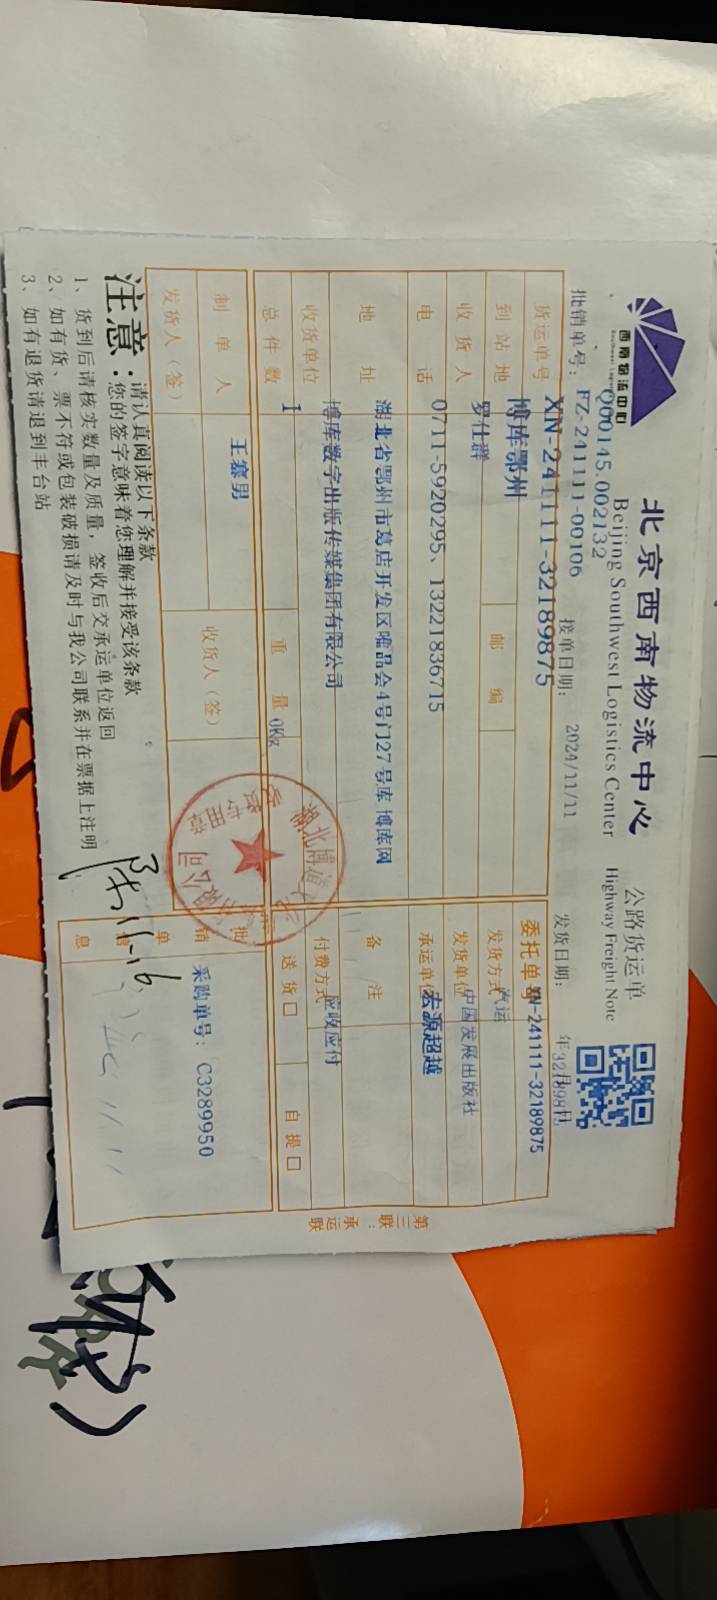 西南物流中心
北京西南物流中心
Beijing Southwest Logistics Center
公路货运单
Highway Freight Note
Q00145.002132
批销单号：FZ-241111-00106
接单日期：
2024/11/11
发货日期：
货运单号
XN-241111-32189875
委托单号
XN-241111-32189875
到站地
博库鄂州
邮编
发货方式
汽运
收货人
罗仕群
发货单位
中国发展出版社
电话
0711-5920295、13221836715
承运单位
宏源超越
地址
湖北省鄂州市葛店开发区唯品会4号门27号库 博库网
备注
收货单位
博库数字出版传媒集团有限公司
付费方式
应收应付
总件数
1
重量
0Kg
送货
自提
制单人
王赛男
收货人（签）
发货人（签）
批销单信息
采购单号：C3289950
收货专用章
第三联：承运联
注意：
请认真阅读以下条款
您的签字意味着您理解并接受该条款
1、货到后请核实数量及质量，签收后交承运单位返回
2、如有货、票不符或包装破损请及时与我公司联系并在票据上注明
3、如有退货请退到丰台站
11-16